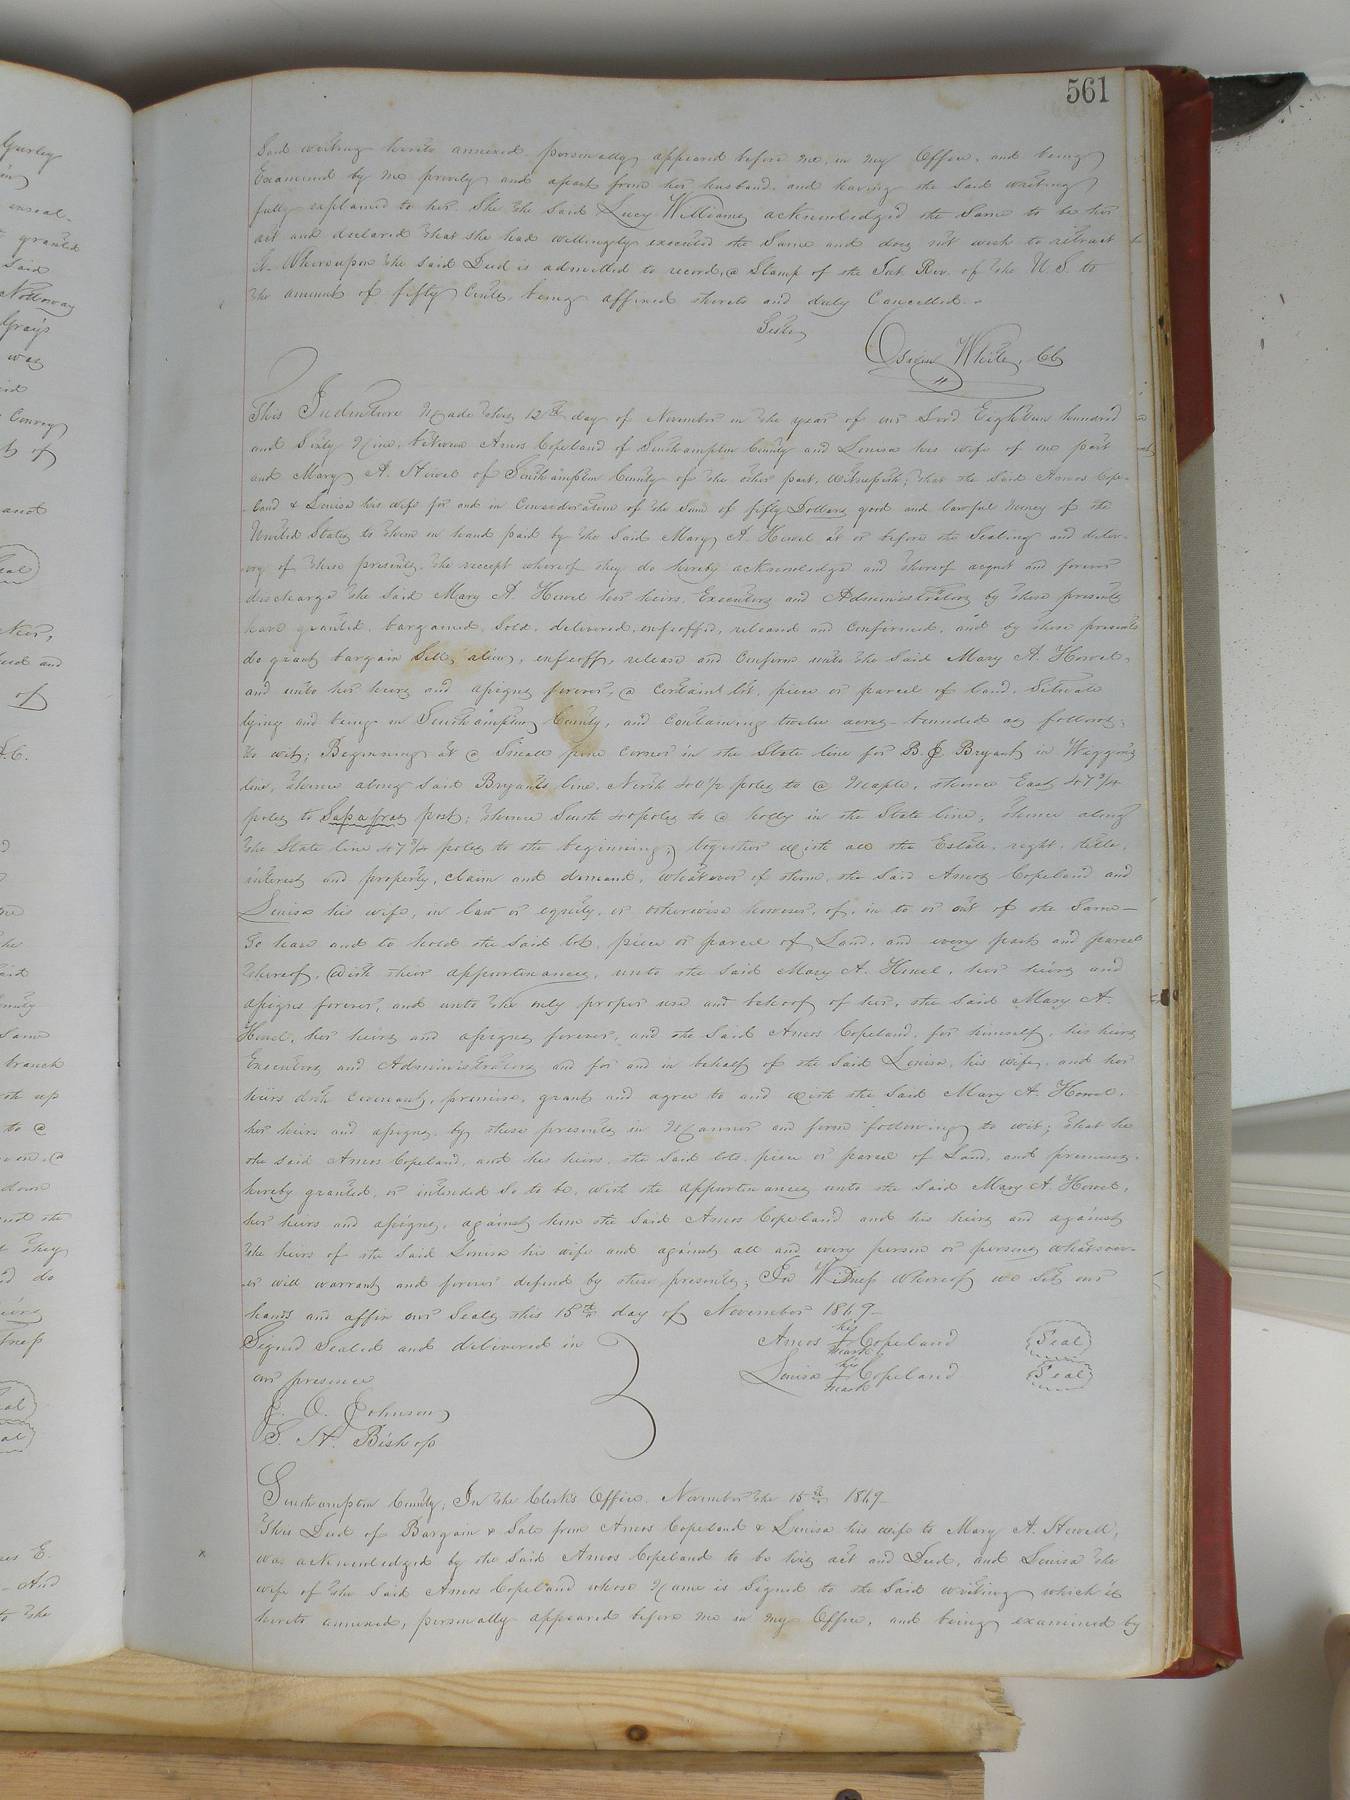 561
Said writing hereto annexed personally appeared before me, in my Office, and being
Examined by me privily and apart from her husband, and having the Said writing
fully explained to her She the Said Lucy Williams acknowledged the Same to be her
act and declared that she had willingly executed the Same and does not wish to retract
It. Whereupon the said Deed is admitted to record, a Stamp of the Int. Rev. of the U.S. to
the amount of fifty Cents being affixed thereto and duly Cancelled.
Teste,
White, CC
This Indenture Made this 12th day of November in the year of our Lord Eighteen hundred
and Sixty Nine, between Amos Copeland of Southampton County and Louisa his wife of one part
and Mary A. Howel of Southampton County of the other part, Witnesseth; that the Said Amos Cope-
land & Louisa his wife for and in Consideration of the Sum of fifty Dollars good and lawful money of the
United States to them in hand paid by the Said Mary A. Howel at or before the Sealing and deliv-
ery of these presents, the receipt whereof they do hereby acknowledge and thereof acquit and forever
discharge the Said Mary A. Howel her heirs, Executors and Administrators by these presents
have granted, bargained, Sold, delivered, enfeoffed, released and Confirmed, and by these presents
do grant bargain Sell, alien, enfeoff, release and Confirm unto the Said Mary A. Howel,
and unto her heirs and assigns forever, a certaint lot, piece or parcel of land, Situate
lying and being in Southampton County, and Containing twelve acres bounded as follows;
to wit; Beginning at a Small pine corner in the State line for B. J. Bryant in Waggon's
line, thence along Said Bryants line North 40 1/2 poles to a Maple, thence East 47 3/4
poles to Sassafras post; thence South 40 poles to a holly in the State line; thence along
the State line 47 3/4 poles to the beginning; together with all the Estate, right, title,
interest and property, claim and demand, whatever of them, the Said Amos Copeland and
Louisa his wife, in law or equity, or otherwise however, of, in to or out of the Same—
To have and to hold the Said lot, piece or parcel of Land, and every part and parcel
thereof, with their appurtenances, unto the Said Mary A. Howel, her heirs and
assigns forever, and unto the only proper use and behoof of her, the Said Mary A.
Howel, her heirs and assigns forever, and the Said Amos Copeland, for himself, his heirs
Executors and Administrators and for and in behalf of the Said Louisa, his wife, and her
heirs doth Covenant, promise, grant and agree to and with the Said Mary A. Howel,
her heirs and assigns, by these presents in Manner and form following to wit; that he
the said Amos Copeland, and his heirs, the Said lot, piece or parcel of Land, and premises,
hereby granted, or intended So to be, with the appurtenances unto the Said Mary A. Howel,
her heirs and assigns, against him the Said Amos Copeland and his heirs and against
the heirs of the Said Louisa his wife and against all and every person or persons whatsoev-
er will warrant and forever defend by these presents; In Witness whereof we Set our
hands and affix our Seals this 15th day of November 1869—
Signed Sealed and delivered in
our presence
J. O. Johnson
S. H. Bishop
his
Amos + Copeland Seal
mark
his
Louisa + Copeland Seal
mark
Southampton County, In the Clerk's Office November the 15th 1869—
This Deed of Bargain & Sale from Amos Copeland & Louisa his wife to Mary A. Howell,
was acknowledged by the Said Amos Copeland to be his act and Deed, and Louisa the
wife of the Said Amos Copeland whose Name is Signed to the Said writing which is
hereto annexed, personally appeared before me in my Office, and being examined by